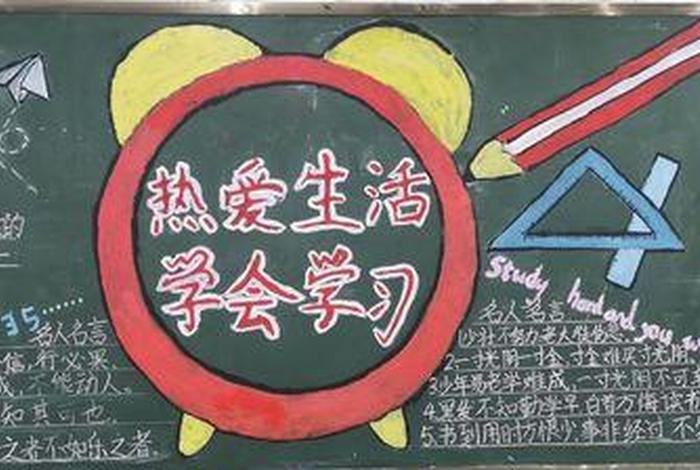 热爱生活
学会学习
的
35......
名人名言
信,行必果。
不能动人。
知其 也。
之者不如乐之者。
Study hard and you w
名人名言
1少壮不努力老大徒伤悲。
2一寸光阴一寸金,寸金难买寸光阴
3少年易老学难成,一寸光阴不可
4黑发不知勤学早白首方悔读书
5.书到用时方恨少,事非经过不